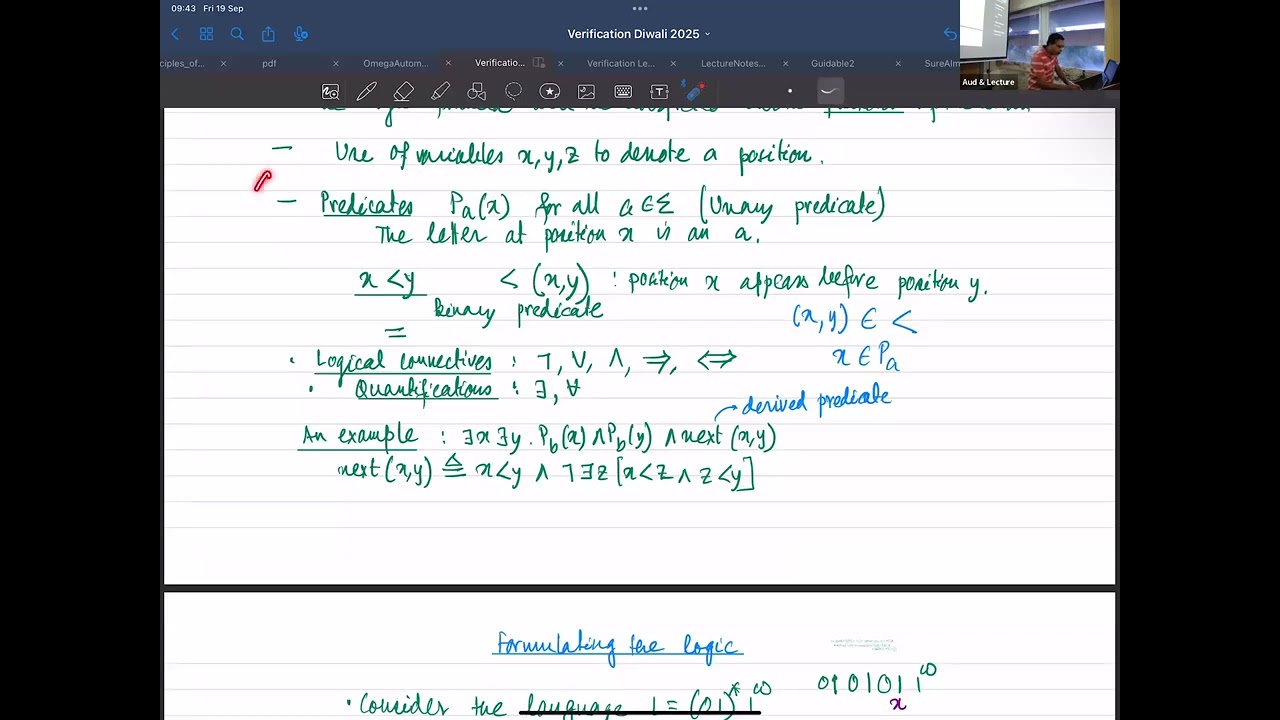 09:43 Fri 19 Sep
Verification Diwali 2025
ciples_of...
pdf
OmegaAutom...
Verificatio...
Verification Le...
LectureNotes...
Guidable2
SureAlm
Aud & Lecture
— Use of variables x, y, z to denote a position.
— Predicates Pa(x) for all a ∈ Σ (Unary predicate)
The letter at position x is an a.
x < y < (x, y) : position x appears before position y.
binary predicate
(x, y) ∈ <
=
x ∈ Pa
• Logical connectives : ¬, ∨, ∧, ⇒, ⇔
• Quantifications : ∃, ∀
derived predicate
An example : ∃x ∃y . Pb(x) ∧ Pb(y) ∧ next (x, y)
next (x, y) ≜ x < y ∧ ¬ ∃z [x < z ∧ z < y]
Formulating the logic
0101011^ω
• Consider the language L = (01)* 1^ω
x